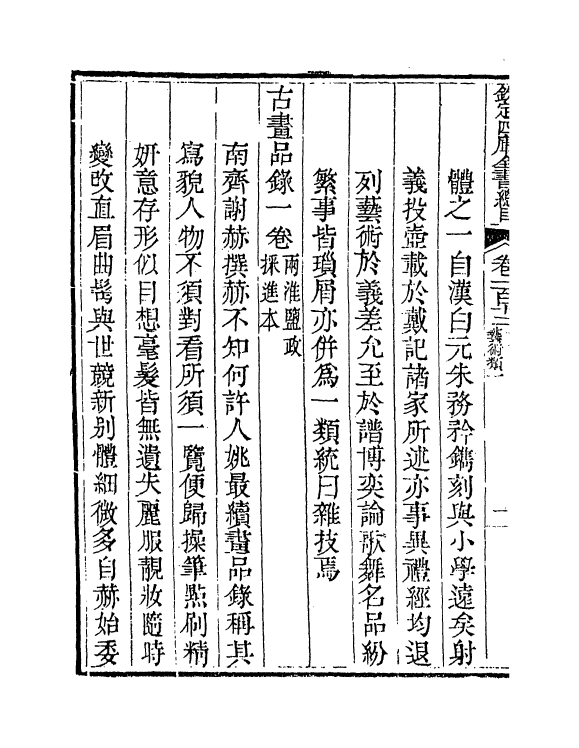 欽定四庫全書總目 卷一百十二 藝術類一 一
體之一自漢白元朱務矜鐫刻與小學遠矣射
義投壺載於戴記諸家所述亦事異禮經均退
列藝術於義差允至於譜博奕論歌舞名品紛
繁事皆瑣屑亦併為一類統曰雜技焉
古畫品錄一卷兩淮鹽政採進本
南齊謝赫撰赫不知何許人姚最續畫品錄稱其
寫貌人物不須對看所須一覽便歸操筆㸃刷精
姸意存形似目想毫髮皆無遺失麗服靚妝隨時
變改直眉曲髩與世競新别體細微多自赫始委